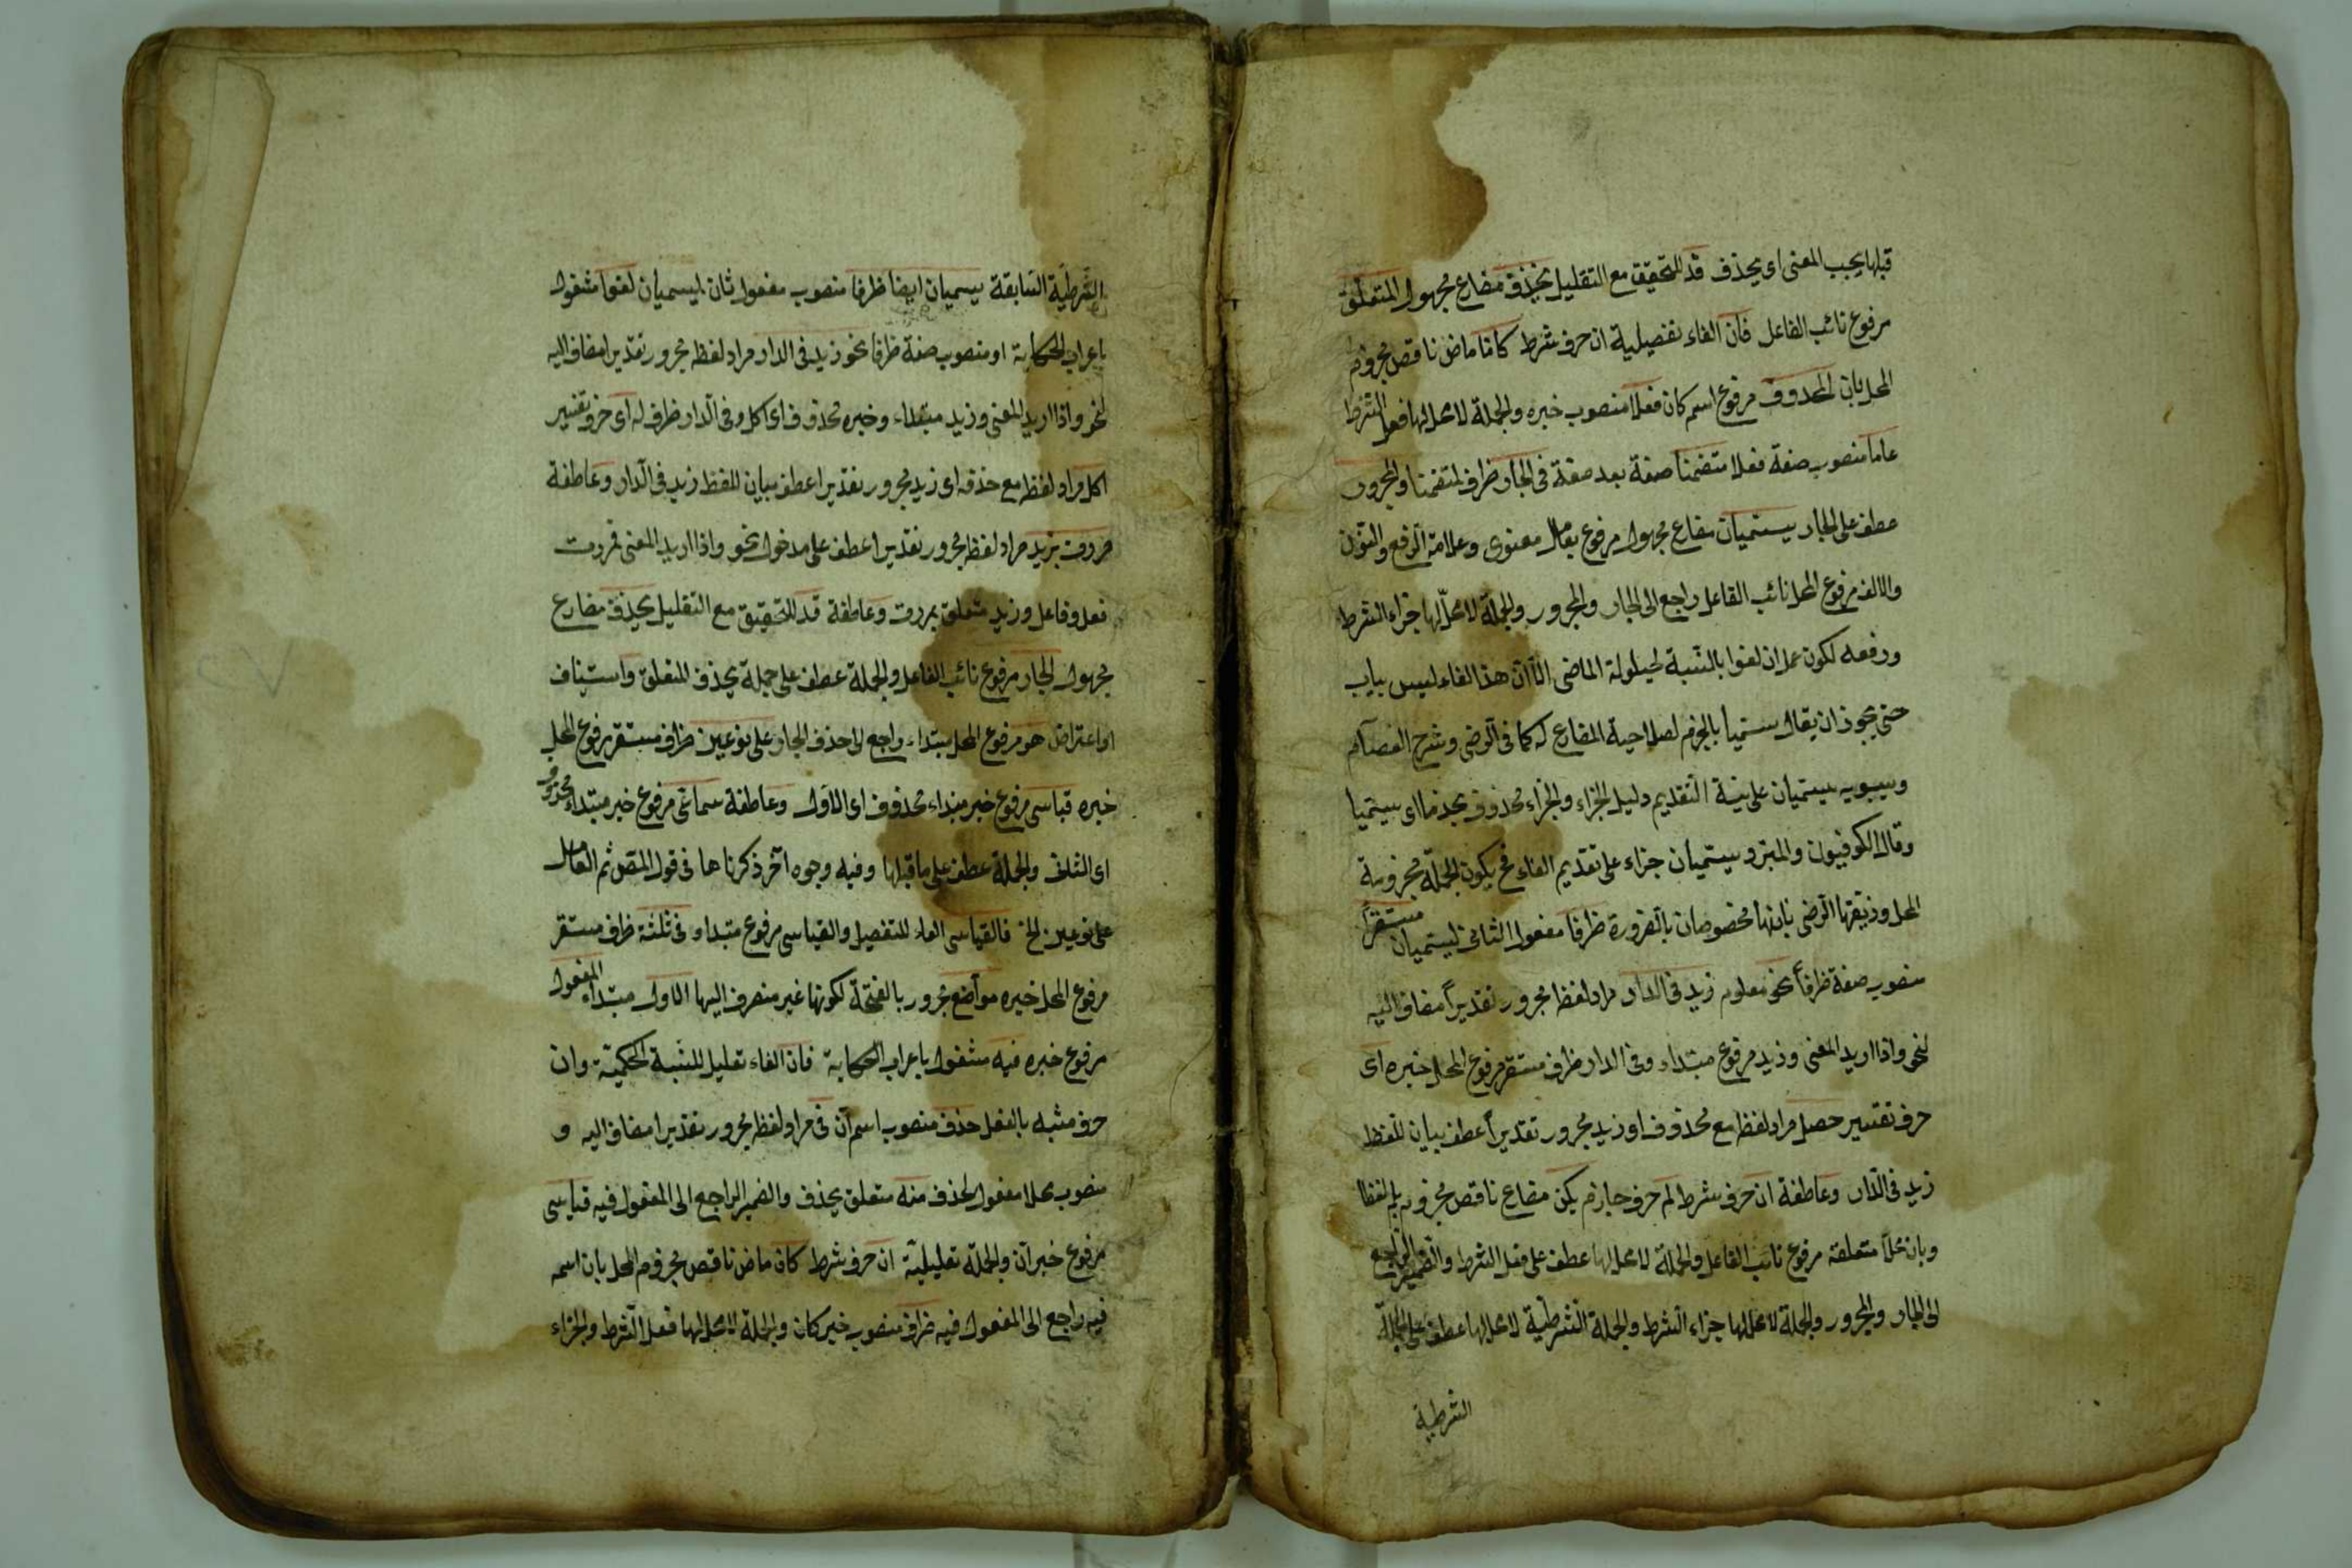 قبلها بحسب المعنى اى يحذف قد للتحقيق مع التقليل يحذف مضارع مجهول المتعلق
مرفوع نائب الفاعل فان الفاء تفصيلية ان حرف شرط كانا ماض ناقص مجزوم
المحل بان المحذوف مرفوع اسم كان فعلا منصوب خبره والجملة لا محل لها فعل الشرط
عاما منصوب صفة فعلا متضمنا صفة بعد صفة فى الجار ظرف لمتضمنا والمجرور
عطف على الجار يستميان مضارع مجهول مرفوع بعامل معنوى وعلامة الرفع والنون
والالف مرفوع المحل نائب الفاعل راجع الى الجار والمجرور والجملة لا محل لها جزاء الشرط
ورفعه لكون عمل ان لغوا بالنسبة لحيلولة الماضى الا ان هذا الفاء ليس بباب
حتى يجوز ان يقال يستميا بالجزم لصلاحية المضارع له كما فى الرضى وشرح العصام
وسيبويه يستميان على نية التقديم دليل الجزاء والجزاء محذوف بعدهما اى يستميا
وقال الكوفيون والمبرد يستميان جزاء على تقديم الفاء فح يكون الجملة مجزومة
المحل وزيفها الرضى بانها مخصوصان بالضرورة ظرفا مفعول الثانى ليستميان مستقرا
منصوب صفة ظرفا نحو معلوم زيد فى الدار مراد لفظا مجرور تقديرا مضاف اليه
لنحو واذا اريد المعنى وزيد مرفوع مبتداء وفى الدار ظرف مستقر مرفوع المحل خبره اى
حرف تفسير حصل مراد لفظ مع محذوف او زيد مجرور تقديرا عطف بيان للفظ
زيد فى الدار وعاطفة ان حرف شرط لم حرف جازم يكن مضارع ناقص مجزوم بلم لفظا
وبان محلا متعلقه مرفوع نائب الفاعل والجملة لا محل لها عطف على فعل الشرط والضمير الراجع
الى الجار والمجرور والجملة لا محل لها جزاء الشرط والجملة الشرطية لا محل لها عطف على الجملة
الشرطية
الشرطية السابقة يسميان ايضا ظرفا منصوب مفعول ثان ليسميان لغوا مشغول
باعراب الحكاية او منصوب صفة ظرفا نحو زيد فى الدار مراد لفظ مجرور تقديرا مضاف اليه
لنحو واذا اريد المعنى وزيد مبتداء وخبره محذوف اى اكل وفى الدار ظرف له اى حرف تفسير
اكل مراد لفظ مع حذفه اى زيد مجرور تقديرا عطف بيان للفظ زيد فى الدار وعاطفة
مررت بزيد مراد لفظ مجرور تقديرا عطف على مدخول نحو واذا اريد المعنى فمررت
فعل وفاعل وزيد متعلق بمررت وعاطفة قد للتحقيق مع التقليل يحذف مضارع
مجهول الجار مرفوع نائب الفاعل والجملة عطف على جملة يحذف المتعلق واستيناف
او اعتراض هو مرفوع المحل مبتداء راجع الى حذف الجار على نوعين ظرف مستقر مرفوع المحل
خبره قياسى مرفوع خبر مبتداء محذوف اى الاول وعاطفة سماعى مرفوع خبر مبتداء محذوف
اى الثانى والجملة عطف على ما قبلها وفيه وجوه آخر ذكرناها فى قول المص ثم العامل
على نوعين الخ فالقياسى الفاء للتفصيل والقياسى مرفوع مبتداء فى ثلثة ظرف مستقر
مرفوع المحل خبره مواضع مجرور بالفتحة لكونها غير منصرف اليها الاول مبتداء المفعول
مرفوع خبره فيه مشغول باعراب الحكاية فان الفاء تعليل للنسبة الحكمية وان
حرف مشبه بالفعل حذف منصوب اسم ان فى مراد لفظ مجرور تقديرا مضاف اليه و
منصوب محلا مفعول لحذف منه متعلق يحذف والضمير الراجع الى المفعول فيه قياسى
مرفوع خبر ان والجملة تعليلية ان حرف شرط كان ماض ناقص مجزوم المحل بان اسمه
فيه راجع الى المفعول فيه ظرف منصوب خبر كان والجملة لا محل لها فعل الشرط والجزاء